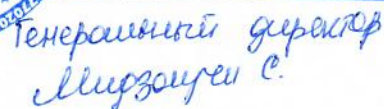 Генеральный директор
Мидзаучи С.